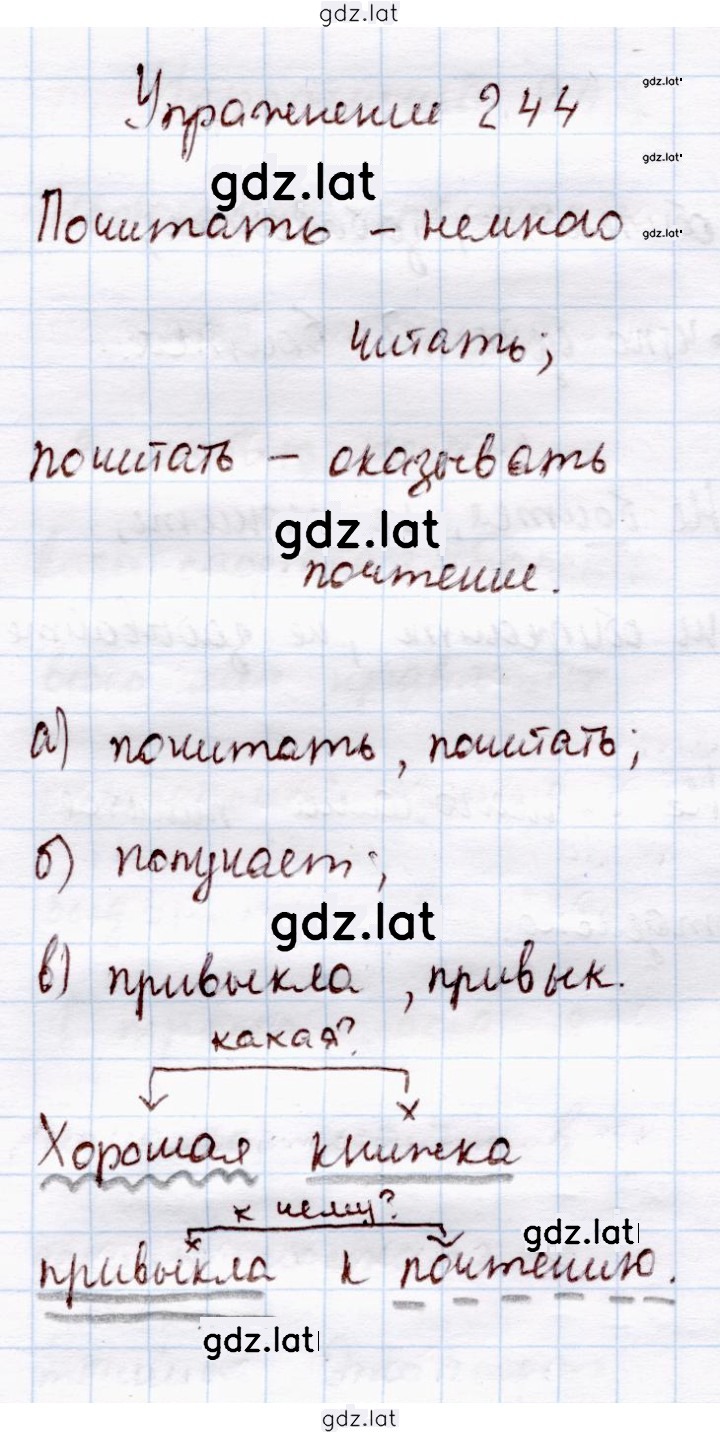 gdz.lat
Упражнение 244
gdz.lat
gdz.lat
gdz.lat
Почитать – немного
gdz.lat
читать;
почитать – оказывать
gdz.lat
почтение.
а) почитать, почитать;
б) получает;
gdz.lat
в) привыкла, привык.
какая?
х
Хорошая книжка
к чему?
х
gdz.lat
привыкла к почтению.
gdz.lat
gdz.lat